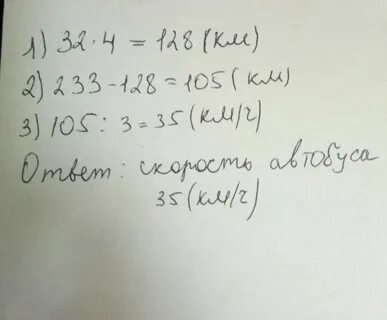 1) 32 · 4 = 128 (км)
2) 233 - 128 = 105 (км)
3) 105 : 3 = 35 (км/г)
Ответ: скорость автобуса
35 (км/г)